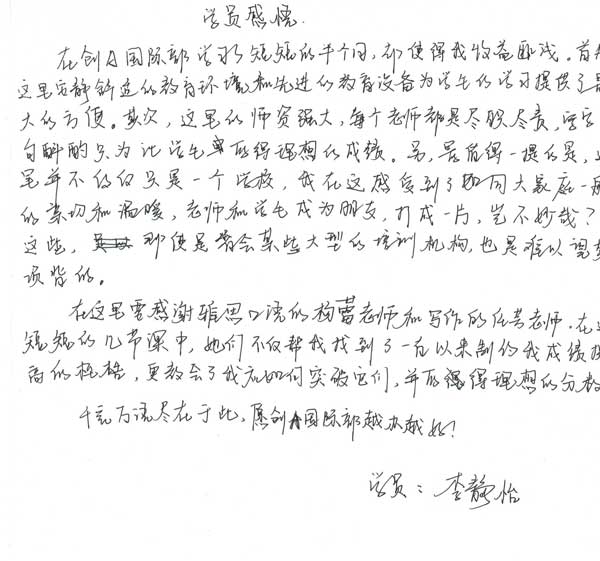 学员感悟
在创A国际部学习了短短的半个月,却使得我收益匪浅。首先
这里安静舒适的教育环境和先进的教育设备为学生的学习提供了最
大的方便。其次,这里的师资强大,每个老师都是尽职尽责,字字
句斟酌只为让学生获得理想的成绩。另,最值得一提的是,这
里并不仅仅只是一个学校,我在这感受到了如同大家庭一般
的亲切和温暖,老师和学生成为朋友,打成一片,岂不妙哉?
这些,那使是当会某些大型的培训机构,也是难以望其
项背的。
在这里要感谢雅思口语的杨蕾老师和写作的任芸老师。在这
短短的几节课中,她们不仅帮我找到了一直以来制约我成绩提
高的桎梏,更教会了我应如何突破它们,并获得理想的分数
千言万语尽在于此,愿创A国际部越办越好!
学员:李静怡